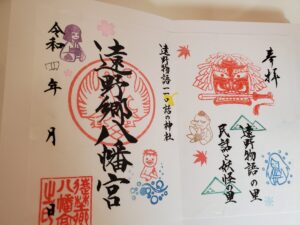 奉拝
遠野物語の里
民話と妖怪の里
遠野物語一一〇話の神社
遠野郷八幡宮
令和四年 月 日
遠野郷
八幡宮
之印